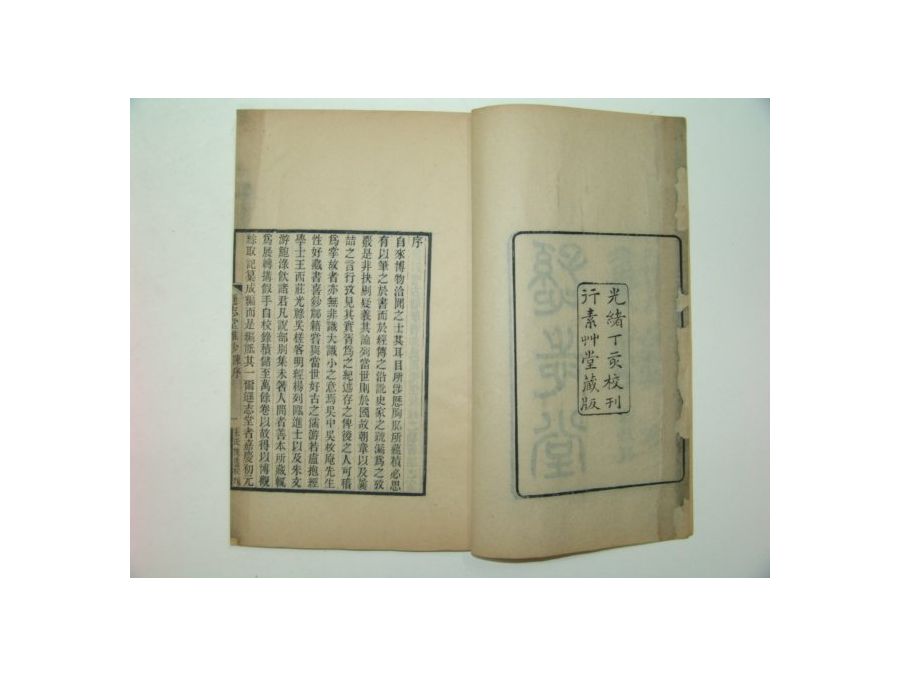 光緒丁亥校刊
行素艸堂藏版
序
自來博物洽聞之士其耳目所涉歷胸肊所蘊積必思
有以筆之於書而於經傳之沿訛史家之疏漏為之攷
覈是非抉剔疑義其論列當世則於國故朝章以及
詰之言行攷見其實胥為之紀述存之俾後之人可稽
為掌故者亦無非識大識小之意焉吳中吳枚庵先生
性好藏書喜鈔祕籍嘗與當世好古之儒游若盧抱經
學士王西莊光祿吳槎客明經楊列臨進士以及朱文
游鮑淥飲諸君凡說部別集未著人間者善本所藏輒
為展轉搆假手自校錄積儲至萬餘卷以故得以博觀
綜取記纂成編而是編厪其一爾遜志堂者嘉慶初元
遜志堂雜鈔序